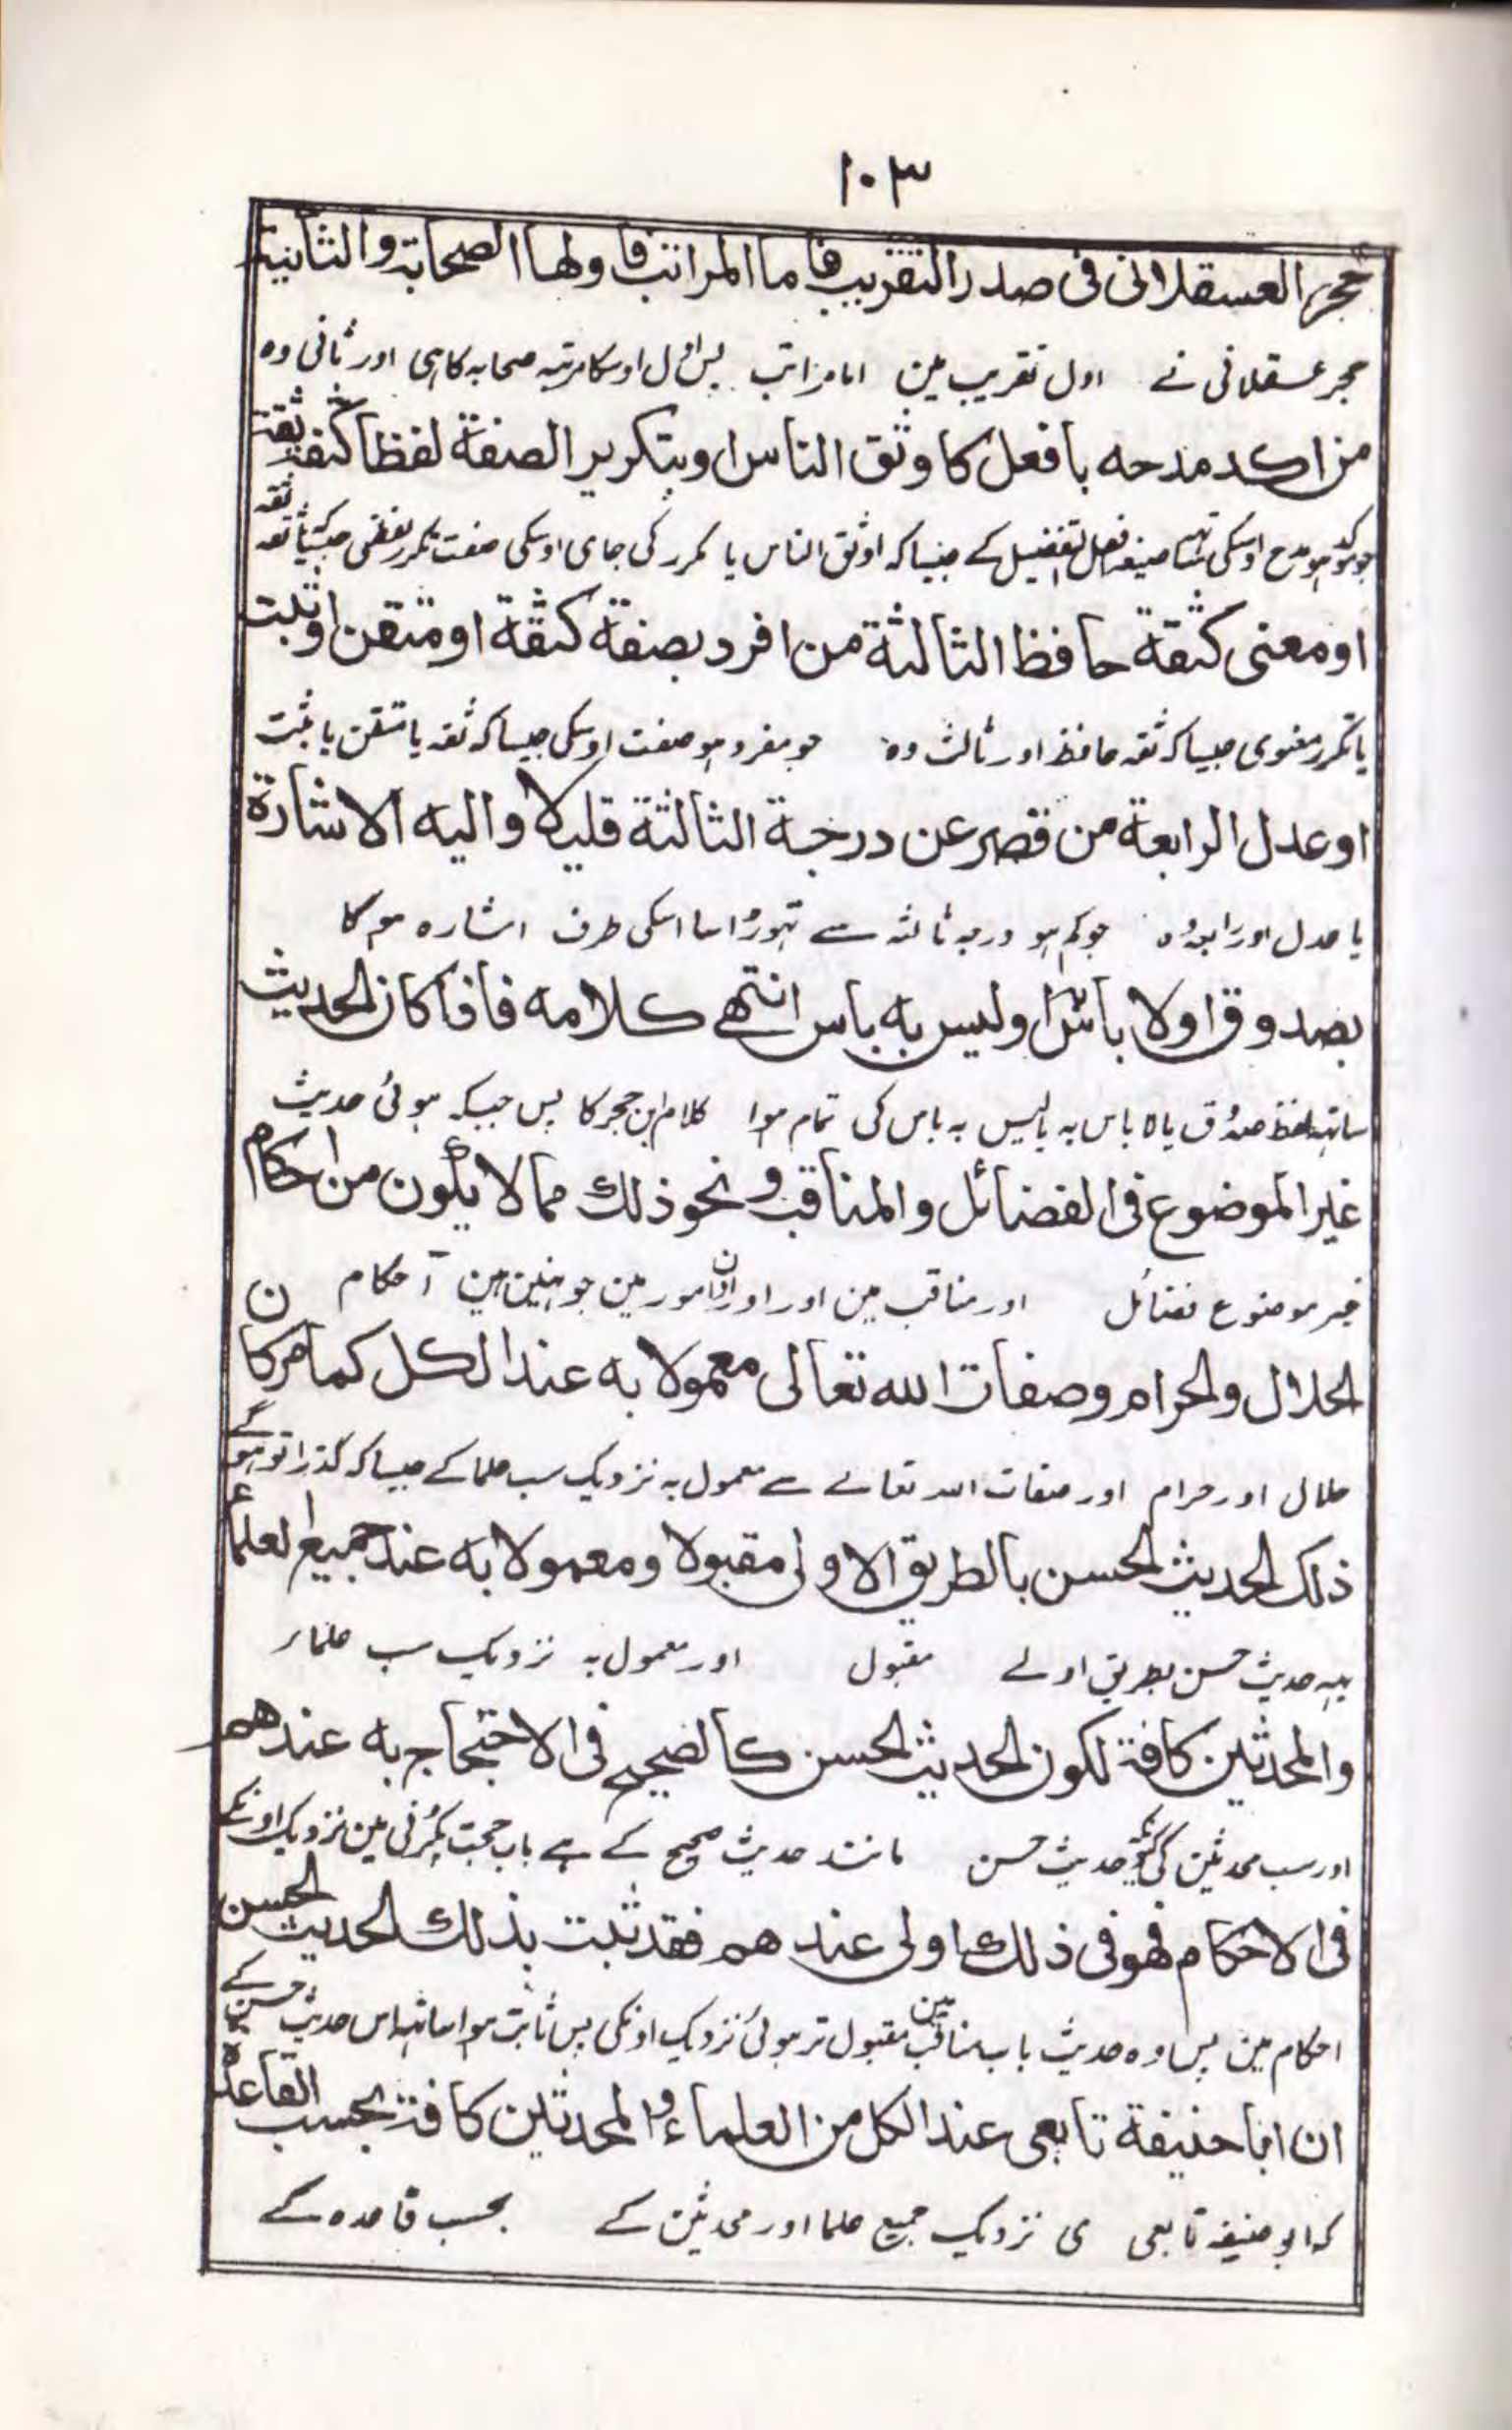 ١٠٣
حجر العسقلانی فی صدر التقریب فاما المراتب فاولها الصحابة والثانیة
حجر عسقلانی نے اول تقریب مین اما مراتب پس اول اوسکا مرتبہ صحابہ کا ہی اور ثانی وہ
من اکد مدحه بافعل کاوثق الناس او بتکریر الصفة لفظا کثقة ثقة
جو موکد ہو مدح اوسکی ساتھ صیغہ افعل تفضیل کے جیسا کہ اوثق الناس یا مکرر کی جای اوسکی صفت تکرر لفظی جیسا کہ ثقہ ثقہ
او معنی کثقة حافظ الثالثة من افرد بصفة کثقة او متقن او ثبت
یا تکرر معنوی جیسا کہ ثقہ حافظ اور ثالث وہ جو مفرد ہو صفت اوسکی جیسا کہ ثقہ یا متقن یا ثبت
او عدل الرابعة من قصر عن درجة الثالثة قلیلا والیه الاشارة
یا عدل اور رابعہ وہ جو کم ہو درجہ ثالثہ سے تہوڑا سا اسکی طرف اشارہ ہوگا
بصدوق او لا باس او لیس به باس انتهے کلامه فاذا کان الحدیث
ساتہہ لفظ صدوق یا لا باس بہ یا لیس بہ باس کی تمام ہوا کلام ابن حجر کا پس جبکہ ہوئی حدیث
غیر الموضوع فی الفضائل والمناقب ونحو ذلك مما لا یکون من احکام
غیر موضوع فضائل اور مناقب مین اور اور ان امور مین جو نہین ہین احکام
الحلال والحرام وصفات الله تعالی معمولا به عند الکل کما مر کان
حلال اور حرام اور صفات اللہ تعالے سے معمول بہ نزدیک سب علما کے جیسا کہ گذرا تو ہوگے
ذلك الحدیث الحسن بالطریق الاولی مقبولا ومعمولا به عند جمیع العلماء
یہہ حدیث حسن بطریق اولے مقبول اور معمول بہ نزدیک سب علماء
والمحدثین کافة لکون الحدیث الحسن کالصحیح فی الاحتجاج به عندهم
اور سب محدثین کی کیونکہ حدیث حسن مانند حدیث صحیح کے ہے باب حجت پکڑنی مین نزدیک اونکے
فی الاحکام فهو فی ذلك اولی عندهم فقد ثبت بذلك الحدیث الحسن
احکام مین پس وہ حدیث باب مناقب مین مقبول تر ہوئی نزدیک اونکی پس ثابت ہوا ساتہہ اس حدیث حسن کے
ان ابا حنیفة تابعی عند الکل من العلماء والمحدثین کافة بحسب القاعدة
کہ ابو حنیفہ تابعی ہی نزدیک جمیع علما اور محدثین کے بحسب قاعدہ کے